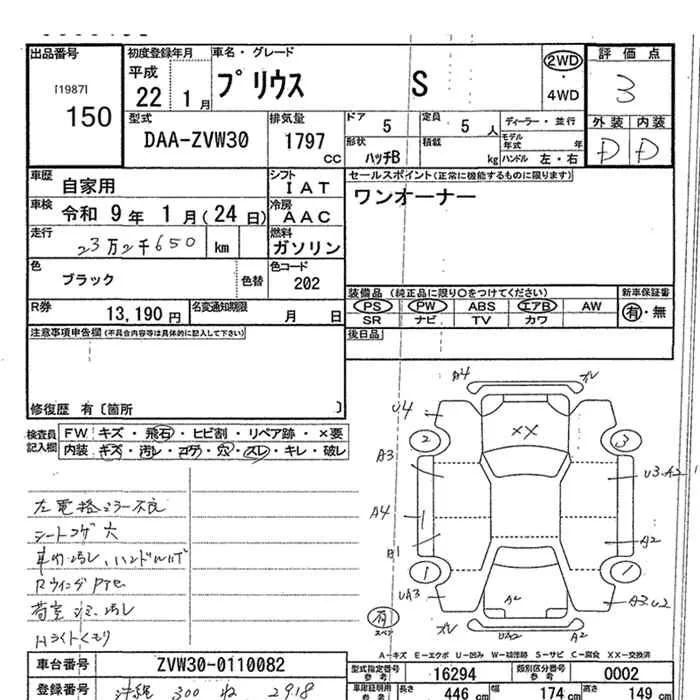 出品番号
[1987]
150
初度登録年月
平成
22 1月
車名・グレード
プリウス S
2WD
・
4WD
評価点
3
外装 内装
D D
型式
DAA-ZVW30
排気量
1797 CC
ドア 5
定員 5人
形状 ハッチB
積載 kg
ディーラー・並行
モデル年式 年
ハンドル 左・右
車歴
自家用
シフト
IAT
セールスポイント(正常に機能するものに限ります)
ワンオーナー
車検
令和 9年 1月(24日)
冷房
AAC
走行
23万2千650 km
燃料
ガソリン
色
ブラック
色替
色コード
202
R券
13,190円
名変通知期限
月 日
装備品(純正品に限り○をつけてください)
新車保証書
PS PW ABS エアB AW
SR ナビ TV カワ
有・無
注意事項申告欄(不具合内容等は具体的に記入して下さい)
後日品
修復歴 有〔箇所 〕
検査員記入欄
FW キズ・飛石・ヒビ割・リペア跡・×要
内装 キズ・汚レ・コゲ・穴・スレ・キレ・破レ
左電格ミラー不良
シートコゲ穴
車内汚レ、ハンドルハゲ
荷室シミ汚レ
Hライトくもり
A4
U4
2
3
XX
A3
U3.A2
A4
B1
A2
1
1
UA3
A2
A3.U2
有
スペア
UA2
A2
A-キズ E-エクボ U-凹み W-補修跡 S-サビ C-腐食 XX-交換済
車台番号
ZVW30-0110082
型式指定番号
参考
16294
類別区分番号
参考
0002
登録番号
沖縄 300 ね 2918
車庫証明用
参考
長さ 446 cm
幅 174 cm
高さ 149 cm